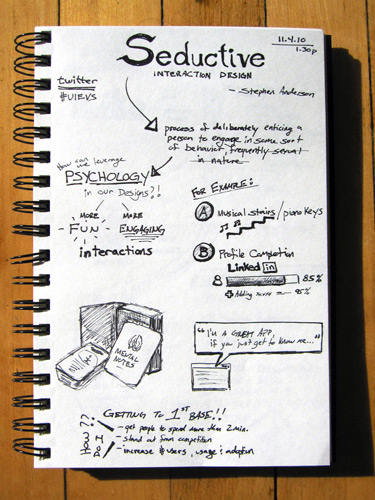 Seductive
INTERACTION DESIGN
11.4.10
1:30p
- Stephen Anderson
twitter
#UIEVS
process of deliberately enticing a
person to engage in some sort
of behavior, frequently sexual
in nature
How can we leverage
PSYCHOLOGY
in our Designs?!!
MORE FUN
MORE ENGAGING
interactions
FOR EXAMPLE:
A Musical stairs / piano keys
B Profile Completion
Linked in
85%
Adding
MENTAL NOTES
"I'M A GREAT APP,
if you just get to know me..."
GETTING TO 1ST BASE!!
HOW DO I ??
- get people to spend more than 2 min.
- stand out from competition
- increase # users, usage & adoption